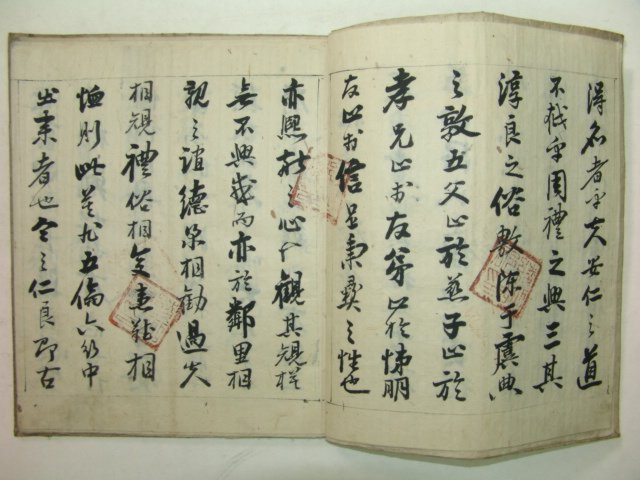 得名者乎夫安仁之道
不越乎周禮之典三其
淳良之俗敷陳于虞典
之敦五父止於慈子止於
孝兄止於友弟止於悌朋
友止於信是秉彝之性也
亦興於之心以觀其規模
無不興感而亦於鄰里相
親之誼德業相勸過失
相規禮俗相交患難相
恤則此莫非五倫六行中
出業者也今之仁良即古